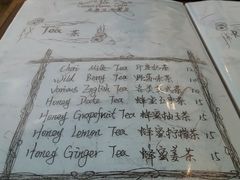 Tea 茶
Chai Milk Tea 印度奶茶
Wild Berry Tea 野莓茶 10
Various English Tea 各类英式茶 10
Honey Date Tea 蜂蜜红枣茶 15
Honey Grapefruit Tea 蜂蜜柚子茶 15
Honey Lemon Tea 蜂蜜柠檬茶 15
Honey Ginger Tea 蜂蜜姜茶 15